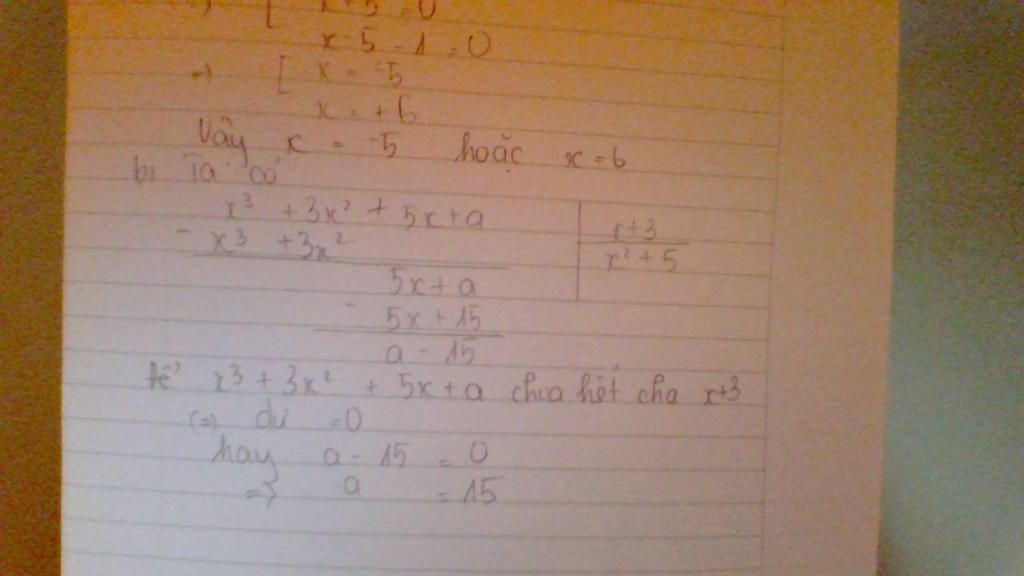 [ x+5=0
x-5-1=0
=> [ x = -5
x = +6
Vậy x = -5 hoặc x=6
b, Ta có
x³ +3x² + 5x+a
x+3
- x³ +3x²
x²+5
5x+a
- 5x+15
a-15
Để x³+3x² +5x+a chia hết cho x+3
(=) dư =0
hay a-15 = 0
=> a = 15